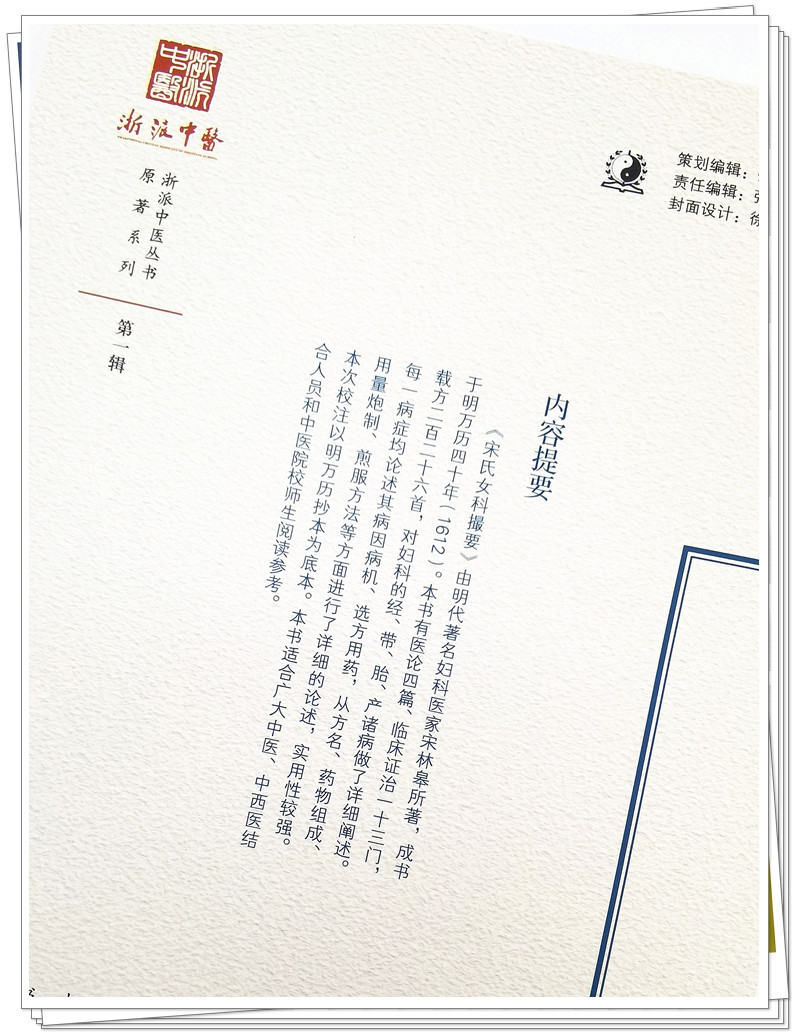 浙派中醫
浙派中醫
浙派中医丛书
原著系列
第一辑
策划编辑：
责任编辑：张
封面设计：徐
内容提要
《宋氏女科撮要》由明代著名妇科医家宋林皋所著，成书
于明万历四十年（1612）。本书有医论四篇、临床证治一十三门，
载方二百二十六首，对妇科的经、带、胎、产诸病做了详细阐述。
每一病症均论述其病因病机、选方用药，从方名、药物组成、
用量炮制、煎服方法等方面进行了详细的论述，实用性较强。
本次校注以明万历抄本为底本。本书适合广大中医、中西医结
合人员和中医院校师生阅读参考。